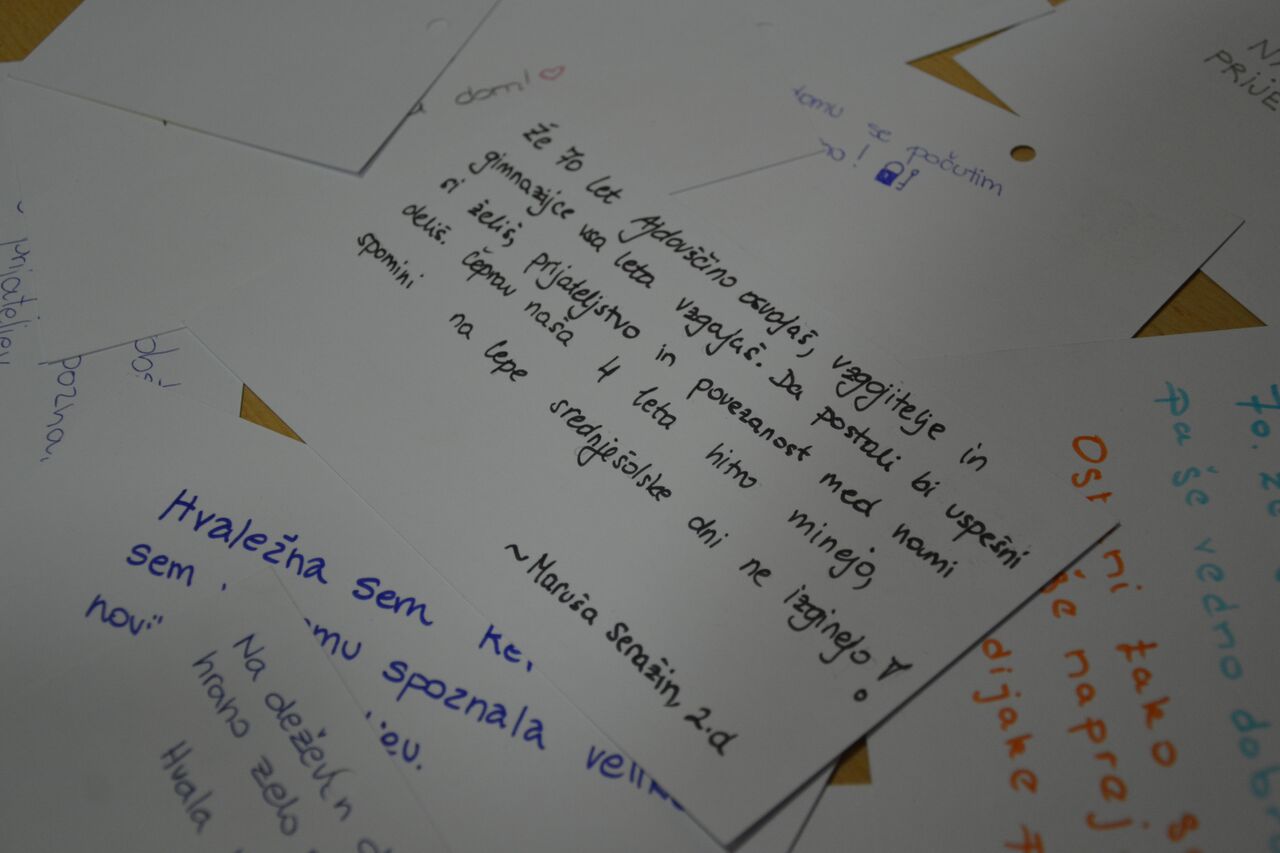 domi
tomu se počutim
no!
NA
PRIJE
Že 70 let Ajdovščino osvojaš, vzgojitelje in
gimnazijce vsa leta vzgajaš. Da postali bi uspešni
si želiš, prijateljstvo in povezanost med nami
deliš. Čeprav naša 4 leta hitro minejo,
spomini na lepe srednješolske dni ne izginejo!
~Maruša Seražin, 2.d
~ prijateljev
pozna
Hvaležna sem ke
sem mu spoznala veli
novi
Na dežev n
hrano zelo
Hvala
Ost ni tako
še naprej
dijake
70.
pa še vedno dobr